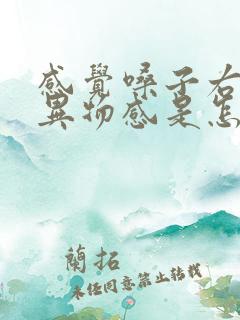 感覺嗓子右
異物感是怎
蘭拓
未经同意禁止转载